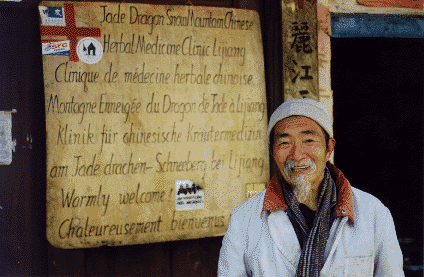 Jade Dragon Snow Mountain Chinese
Herbal Medicine Clinic Lijiang
Clinique de médecine herbale chinoise
Montagne Enneigée du Dragon de Jade à Lijiang
Klinik für chinesische Kräutermedizin
am Jade drachen-Schneeberg bei Lijiang
Wormly welcome!
Chaleureusement bienvenus
麗
江